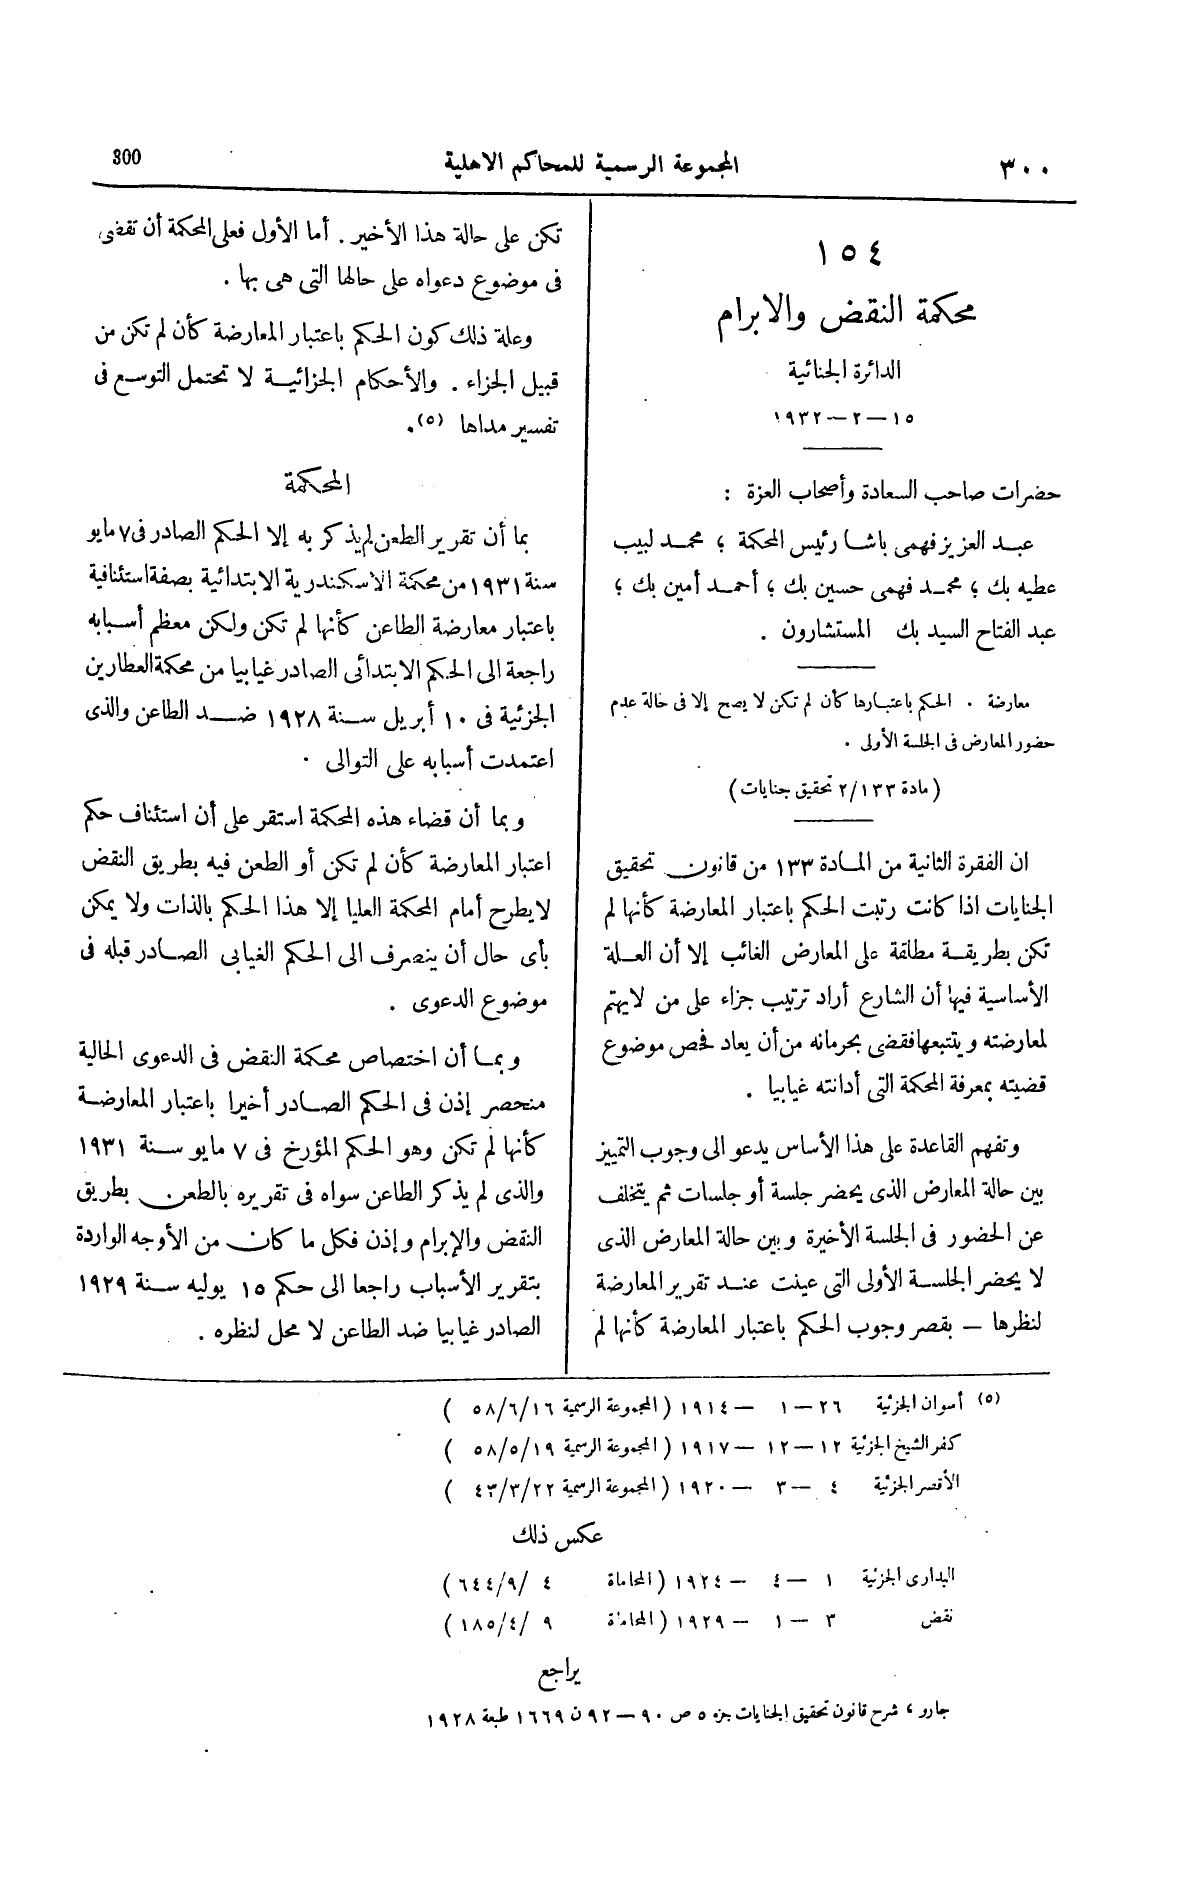 ٣٠٠
المجموعة الرسمية للمحاكم الاهلية
300
١٥٤
محكمة النقض والابرام
الدائرة الجنائية
١٥ — ٢ — ١٩٣٢
حضرات صاحب السعادة وأصحاب العزة :
عبد العزيز فهمى باشا رئيس المحكمة ؛ محمد لبيب
عطيه بك ؛ محمد فهمى حسين بك ؛ أحمد أمين بك ؛
عبد الفتاح السيد بك المستشارون .
معارضة . الحكم باعتبارها كأن لم تكن لا يصح إلا فى حالة عدم
حضور المعارض فى الجلسة الأولى .
( مادة ١٣٣/٢ تحقيق جنايات )
ان الفقرة الثانية من المادة ١٣٣ من قانون تحقيق
الجنايات اذا كانت رتبت الحكم باعتبار المعارضة كأنها لم
تكن بطريقة مطلقة على المعارض الغائب إلا أن العلة
الأساسية فيها أن الشارع أراد ترتيب جزاء على من لايهتم
لمعارضته ويتتبعها فقضى بحرمانه من أن يعاد فحص موضوع
قضيته بمعرفة المحكمة التى أدانته غيابيا .
وتفهم القاعدة على هذا الأساس يدعو الى وجوب التمييز
بين حالة المعارض الذى يحضر جلسة أو جلسات ثم يتخلف
عن الحضور فى الجلسة الأخيرة وبين حالة المعارض الذى
لا يحضر الجلسة الأولى التى عينت عند تقرير المعارضة
لنظرها — بقصر وجوب الحكم باعتبار المعارضة كأنها لم
تكن على حالة هذا الأخير . أما الأول فعلى المحكمة أن تقضى
فى موضوع دعواه على حالها التى هى بها .
وعلة ذلك كون الحكم باعتبار المعارضة كأن لم تكن من
قبيل الجزاء . والأحكام الجزائية لا تحتمل التوسع فى
تفسير مداها (٥).
المحكمة
بما أن تقرير الطعن لم يذكر به إلا الحكم الصادر فى ٧ مايو
سنة ١٩٣١ من محكمة الاسكندرية الابتدائية بصفة استئنافية
باعتبار معارضة الطاعن كأنها لم تكن ولكن معظم أسبابه
راجعة الى الحكم الابتدائى الصادر غيابيا من محكمة العطارين
الجزئية فى ١٠ أبريل سنة ١٩٢٨ ضد الطاعن والذى
اعتمدت أسبابه على التوالى .
وبما أن قضاء هذه المحكمة استقر على أن استئناف حكم
اعتبار المعارضة كأن لم تكن أو الطعن فيه بطريق النقض
لايطرح أمام المحكمة العليا إلا هذا الحكم بالذات ولا يمكن
بأى حال أن ينصرف الى الحكم الغيابى الصادر قبله فى
موضوع الدعوى .
وبما أن اختصاص محكمة النقض فى الدعوى الحالية
منحصر إذن فى الحكم الصادر أخيرا باعتبار المعارضة
كأنها لم تكن وهو الحكم المؤرخ فى ٧ مايو سنة ١٩٣١
والذى لم يذكر الطاعن سواه فى تقريره بالطعن بطريق
النقض والإبرام وإذن فكل ما كان من الأوجه الواردة
بتقرير الأسباب راجعا الى حكم ١٥ يوليه سنة ١٩٢٩
الصادر غيابيا ضد الطاعن لا محل لنظره .
(٥) أسوان الجزئية ٢٦ — ١ — ١٩١٤ ( المجموعة الرسمية ٥٨/٦/١٦ )
كفر الشيخ الجزئية ١٢ — ١٢ — ١٩١٧ ( المجموعة الرسمية ٥٨/٥/١٩ )
الأقصر الجزئية ٤ — ٣ — ١٩٢٠ ( المجموعة الرسمية ٤٣/٣/٢٢ )
عكس ذلك
البدارى الجزئية ١ — ٤ — ١٩٢٤ ( المحاماة ٤ /٦٤٤/٩ )
نقض ٣ — ١ — ١٩٢٩ ( المحاماة ٩ /١٨٥/٤ )
يراجع
جارو ، شرح قانون تحقيق الجنايات جزء ٥ ص ٩٠ — ٩٢ ن ١٦٦٩ طبعة ١٩٢٨